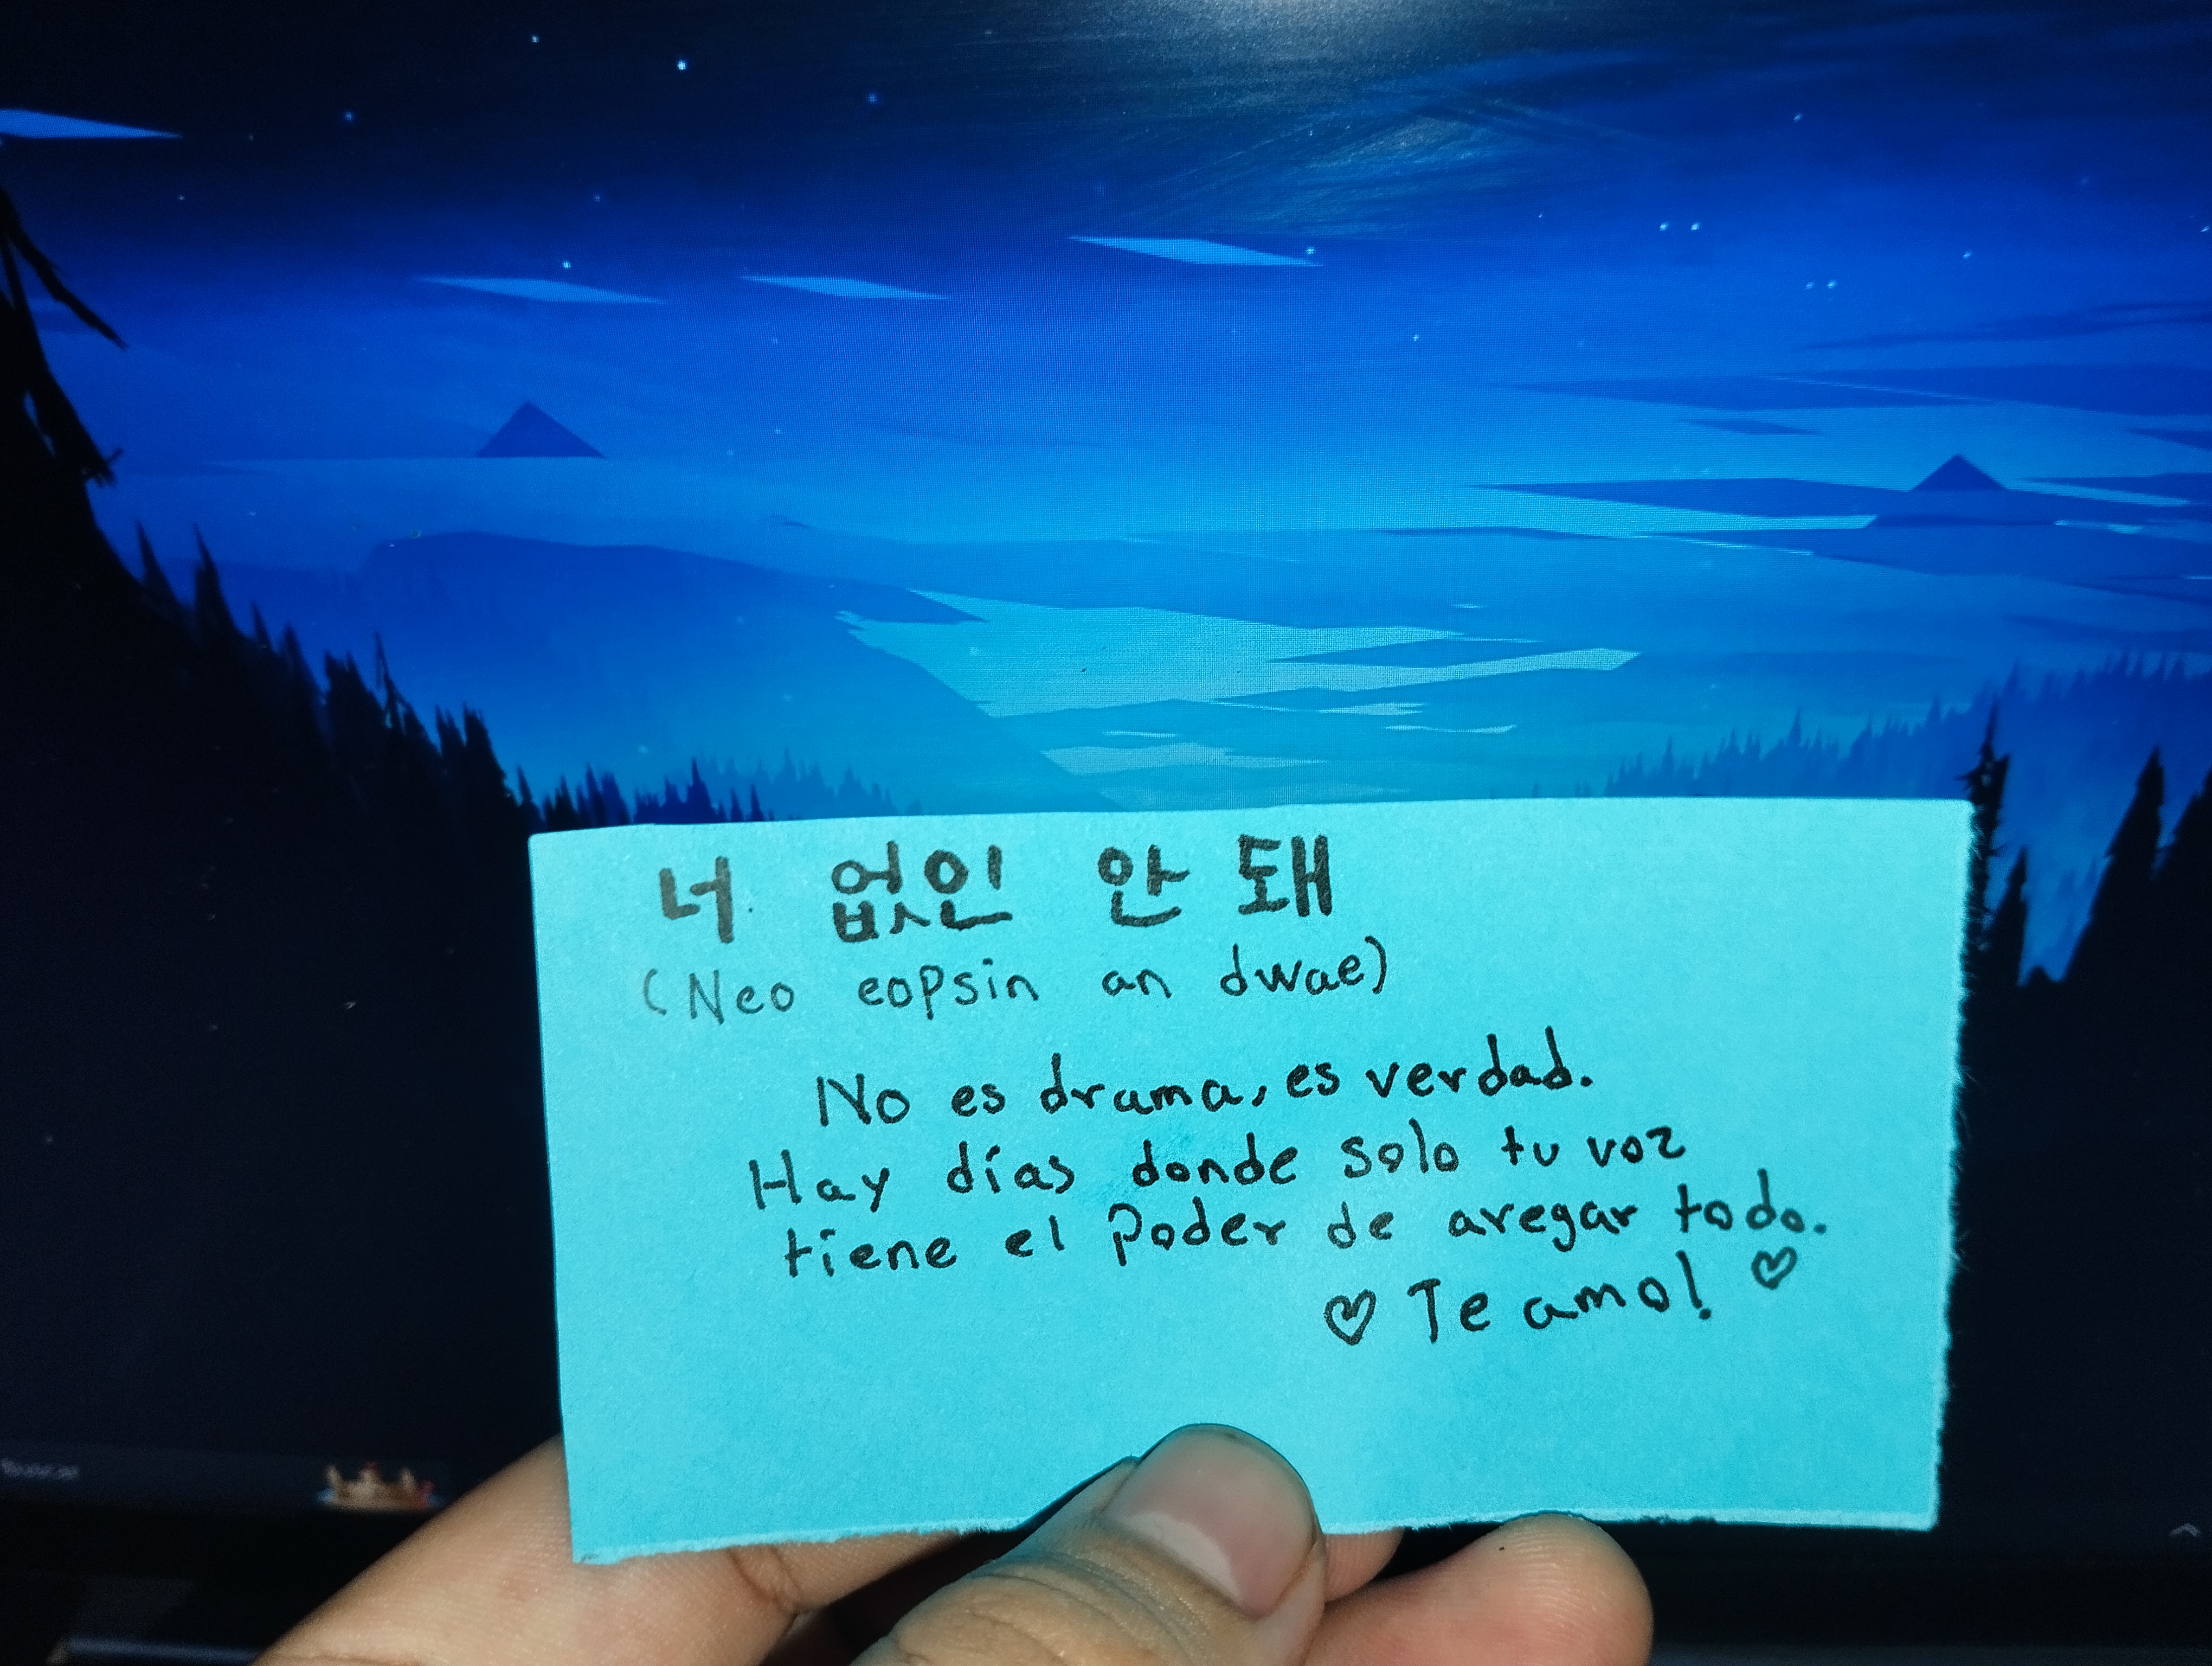 너 없인 안 돼
(Neo eopsin an dwae)
No es drama, es verdad.
Hay días donde solo tu voz
tiene el Poder de aregar todo.
♡ Te amo! ♡
Buscar